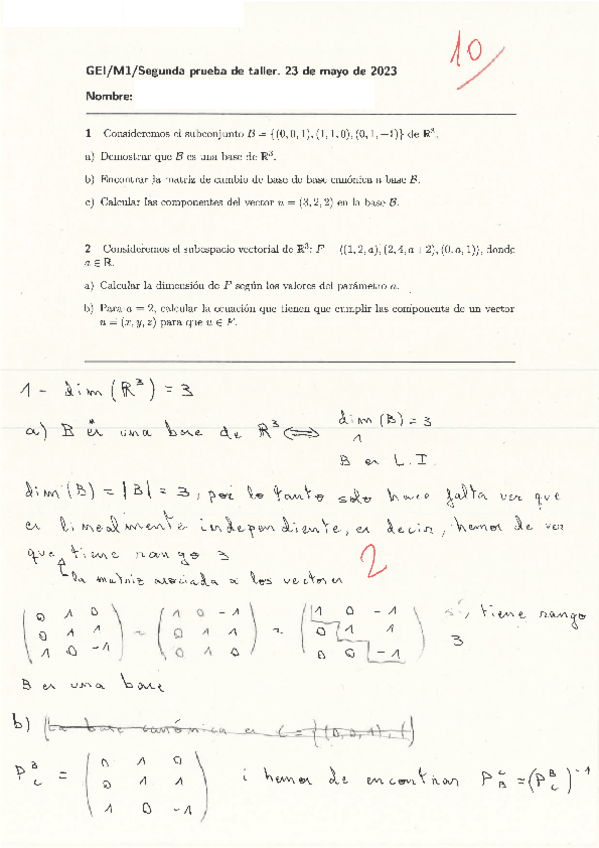 10
GEI/M1/Segunda prueba de taller. 23 de mayo de 2023
Nombre:
1 Consideremos el subconjunto B = {(0,0,1), (1,1,0), (0,1,−1)} de ℝ³.
a) Demostrar que B es una base de ℝ³.
b) Encontrar la matriz de cambio de base de base canónica a base B.
c) Calcular las componentes del vector u = (3,2,2) en la base B.
2 Consideremos el subespacio vectorial de ℝ³: F = ⟨(1,2,a), (2,4,a+2), (0,a,1)⟩, donde
a ∈ ℝ.
a) Calcular la dimensión de F según los valores del parámetro a.
b) Para a = 2, calcular la ecuación que tienen que cumplir las components de un vector
u = (x,y,z) para que u ∈ F.
1 - dim (ℝ³) = 3
a) B es una base de ℝ³ ⟺ dim (B) = 3
∧
B es L.I.
dim (B) = |B| = 3, por lo tanto solo hace falta ver que
es linealmente independiente, es decir, hemos de ver
que tiene rango 3
la matriz asociada a los vectores
2
(0 1 0) ~ (1 0 -1) ~ (1 0 -1) sí, tiene rango
(0 1 1) (0 1 1) (0 1 1) 3
(1 0 -1) (0 1 0) (0 0 -1)
B es una base
b) (La base canónica es C = {(0,0,1), (
P^B_C = (0 1 0)
(0 1 1) i hemos de encontrar P^C_B = (P^B_C)^-1
(1 0 -1)